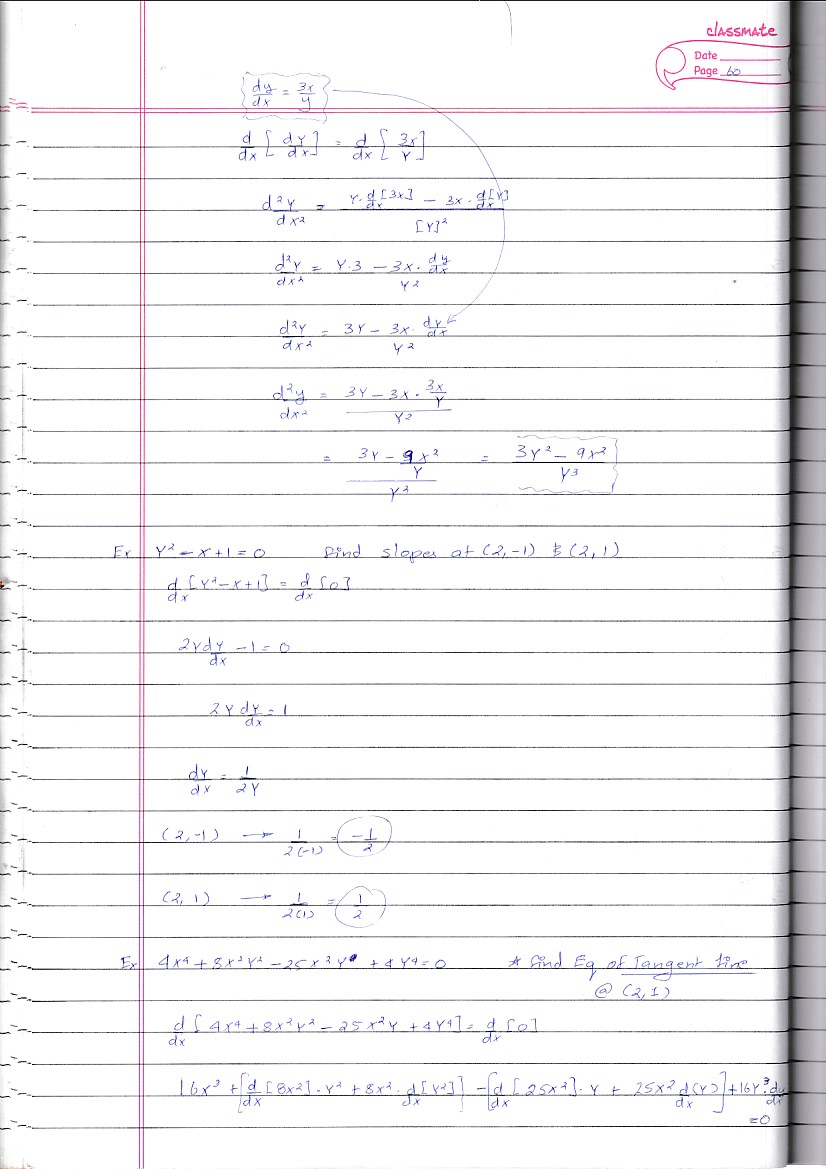 classmate
Date
Page 60
dy/dx = 3x/y
d/dx [dY/dx] = d/dx [3x/Y]
d²Y/dx² = (Y · d/dx[3x] − 3x · d/dx[Y]) / [Y]²
d²Y/dx² = (Y·3 − 3x · dy/dx) / Y²
d²Y/dx² = (3Y − 3x · dy/dx) / Y²
d²y/dx² = (3Y − 3x · 3x/Y) / Y²
= (3Y − 9x²/Y) / Y² = (3Y² − 9x²) / Y³
Ex Y² − x + 1 = 0 Find slopes at (2,-1) & (2,1)
d/dx [Y² − x + 1] = d/dx [0]
2Y dY/dx − 1 = 0
2Y dy/dx = 1
dY/dx = 1/2Y
(2,-1) → 1/2(-1) = -1/2
(2,1) → 1/2(1) = 1/2
Ex 4x⁴ + 8x²Y² − 25x²Y + 4Y⁴ = 0 * Find Eq of Tangent line
@ (2,1)
d/dx [4x⁴ + 8x²Y² − 25x²Y + 4Y⁴] = d/dx [0]
16x³ + [d/dx [8x²] · Y² + 8x² · d/dx [Y²]] − [d/dx [25x²] · Y + 25x² d/dx (Y)] + 16Y³ dy/dx
= 0